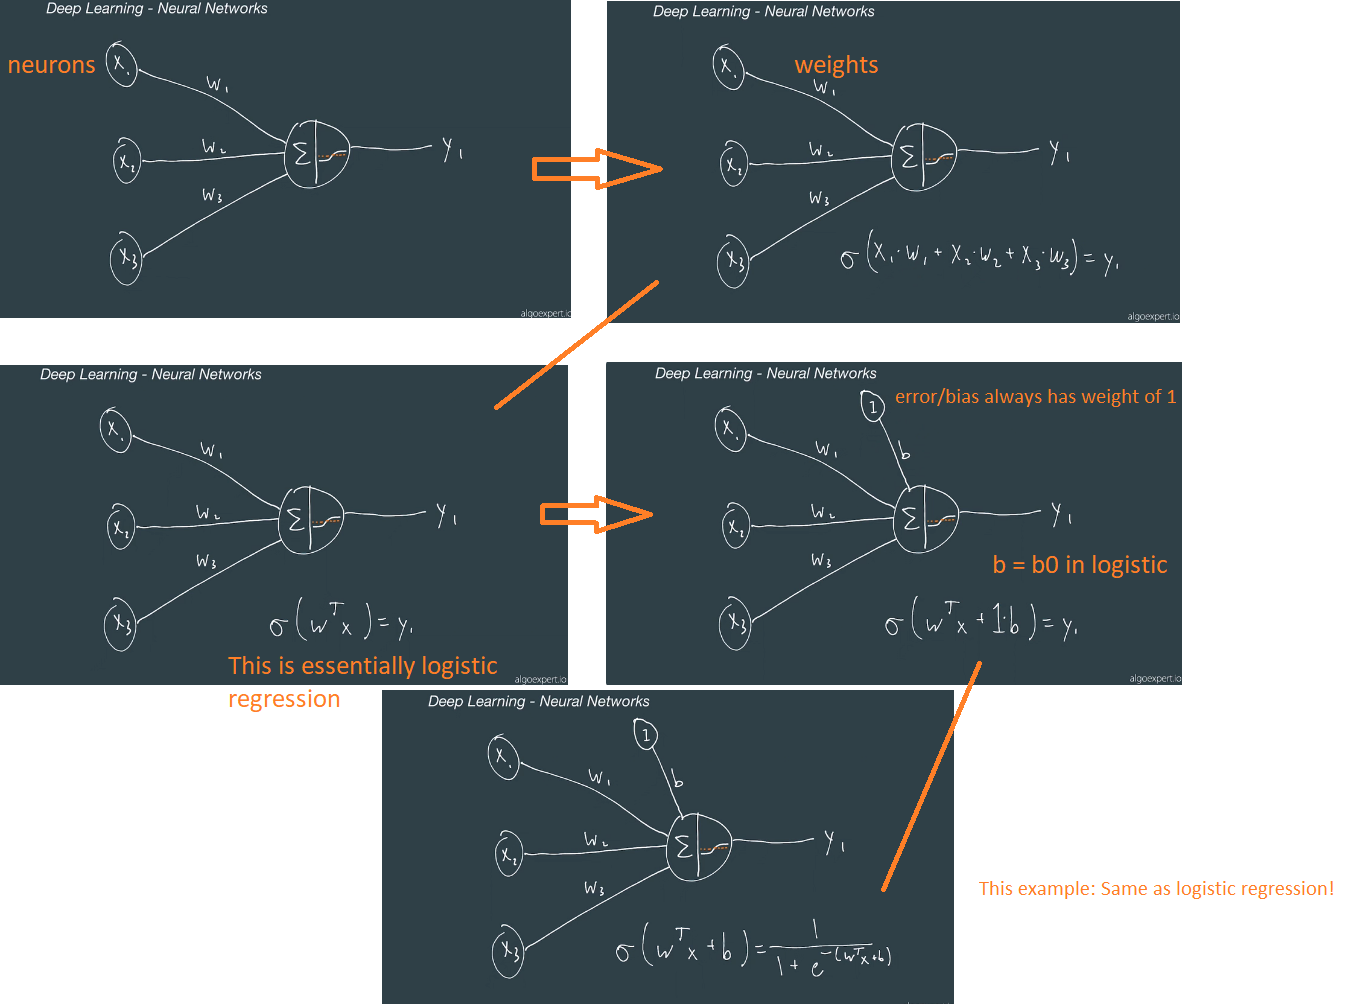 Deep Learning - Neural Networks
neurons
X₁
W₁
X₂
W₂
Σ
y₁
W₃
X₃
algoexpert.io
Deep Learning - Neural Networks
weights
X₁
W₁
X₂
W₂
Σ
y₁
W₃
X₃
σ(X₁·W₁ + X₂·W₂ + X₃·W₃) = y₁
algoexpert.io
Deep Learning - Neural Networks
X₁
W₁
X₂
W₂
Σ
y₁
W₃
X₃
σ(wᵀx) = y₁
This is essentially logistic
regression
algoexpert.io
Deep Learning - Neural Networks
error/bias always has weight of 1
1
X₁
W₁
b
X₂
W₂
Σ
y₁
W₃
b = b0 in logistic
X₃
σ(wᵀx + 1·b) = y₁
algoexpert.io
Deep Learning - Neural Networks
1
X₁
W₁
b
X₂
W₂
Σ
y₁
W₃
This example: Same as logistic regression!
X₃
σ(wᵀx + b) = 1 / (1 + e^-(wᵀx+b))